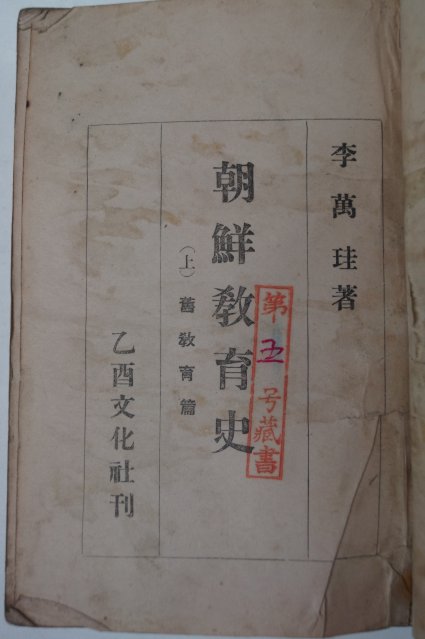 李萬珪著
朝鮮教育史
(上) 舊教育篇
第五号藏書
乙酉文化社刊